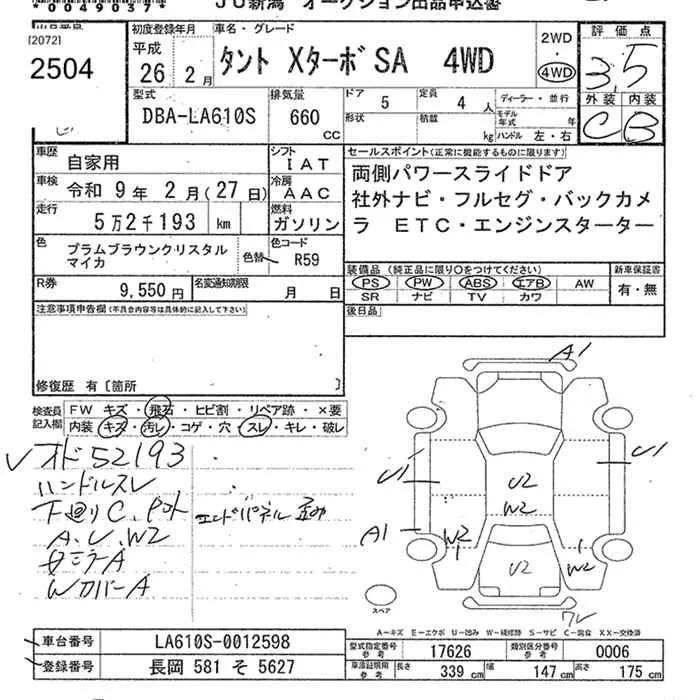 *0049037*
JU新潟 オークション出品申込書
[2072]
2504
初度登録年月
平成
26 年 2 月
車名・グレード
タント Xターボ SA 4WD
2WD
4WD
評価点
3.5
外装 内装
C B
型式
DBA-LA610S
排気量
660 CC
ドア 5
定員 4 人
形状
積載 kg
ディーラー・並行
モデル年式 年
ハンドル 左・右
車歴 自家用
シフト IAT
車検 令和 9年 2月(27日)
冷房 AAC
走行 5万2千193 km
燃料 ガソリン
色 プラムブラウンクリスタルマイカ
色替
色コード R59
R券 9,550円
名変通知期限 月 日
セールスポイント(正常に機能するものに限ります)
両側パワースライドドア
社外ナビ・フルセグ・バックカメ
ラ ETC・エンジンスターター
装備品(純正品に限り○をつけてください)
PS PW ABS エアB AW
SR ナビ TV カワ
新車保証書
有・無
後日品
注意事項申告欄(不具合内容等は具体的に記入して下さい)
修復歴 有〔箇所 〕
検査員記入欄
FW キズ・飛石・ヒビ割・リペア跡・×要
内装 キズ・汚レ・コゲ・穴・スレ・キレ・破レ
オド52193
ハンドルスレ
下廻りC、P付ト
エンドパネル 歪み
A、U、W2
WカバーA
A1
U1
U1
A1
U2
W2
W2
W2
U2
スペア
A-キズ E-エクボ U-凹み W-補修跡 S-サビ C-腐食 XX-交換済
車台番号 LA610S-0012598
登録番号 長岡 581 そ 5627
型式指定番号 参考 17626
類別区分番号 参考 0006
車庫証明用 参考
長さ 339 cm
幅 147 cm
高さ 175 cm